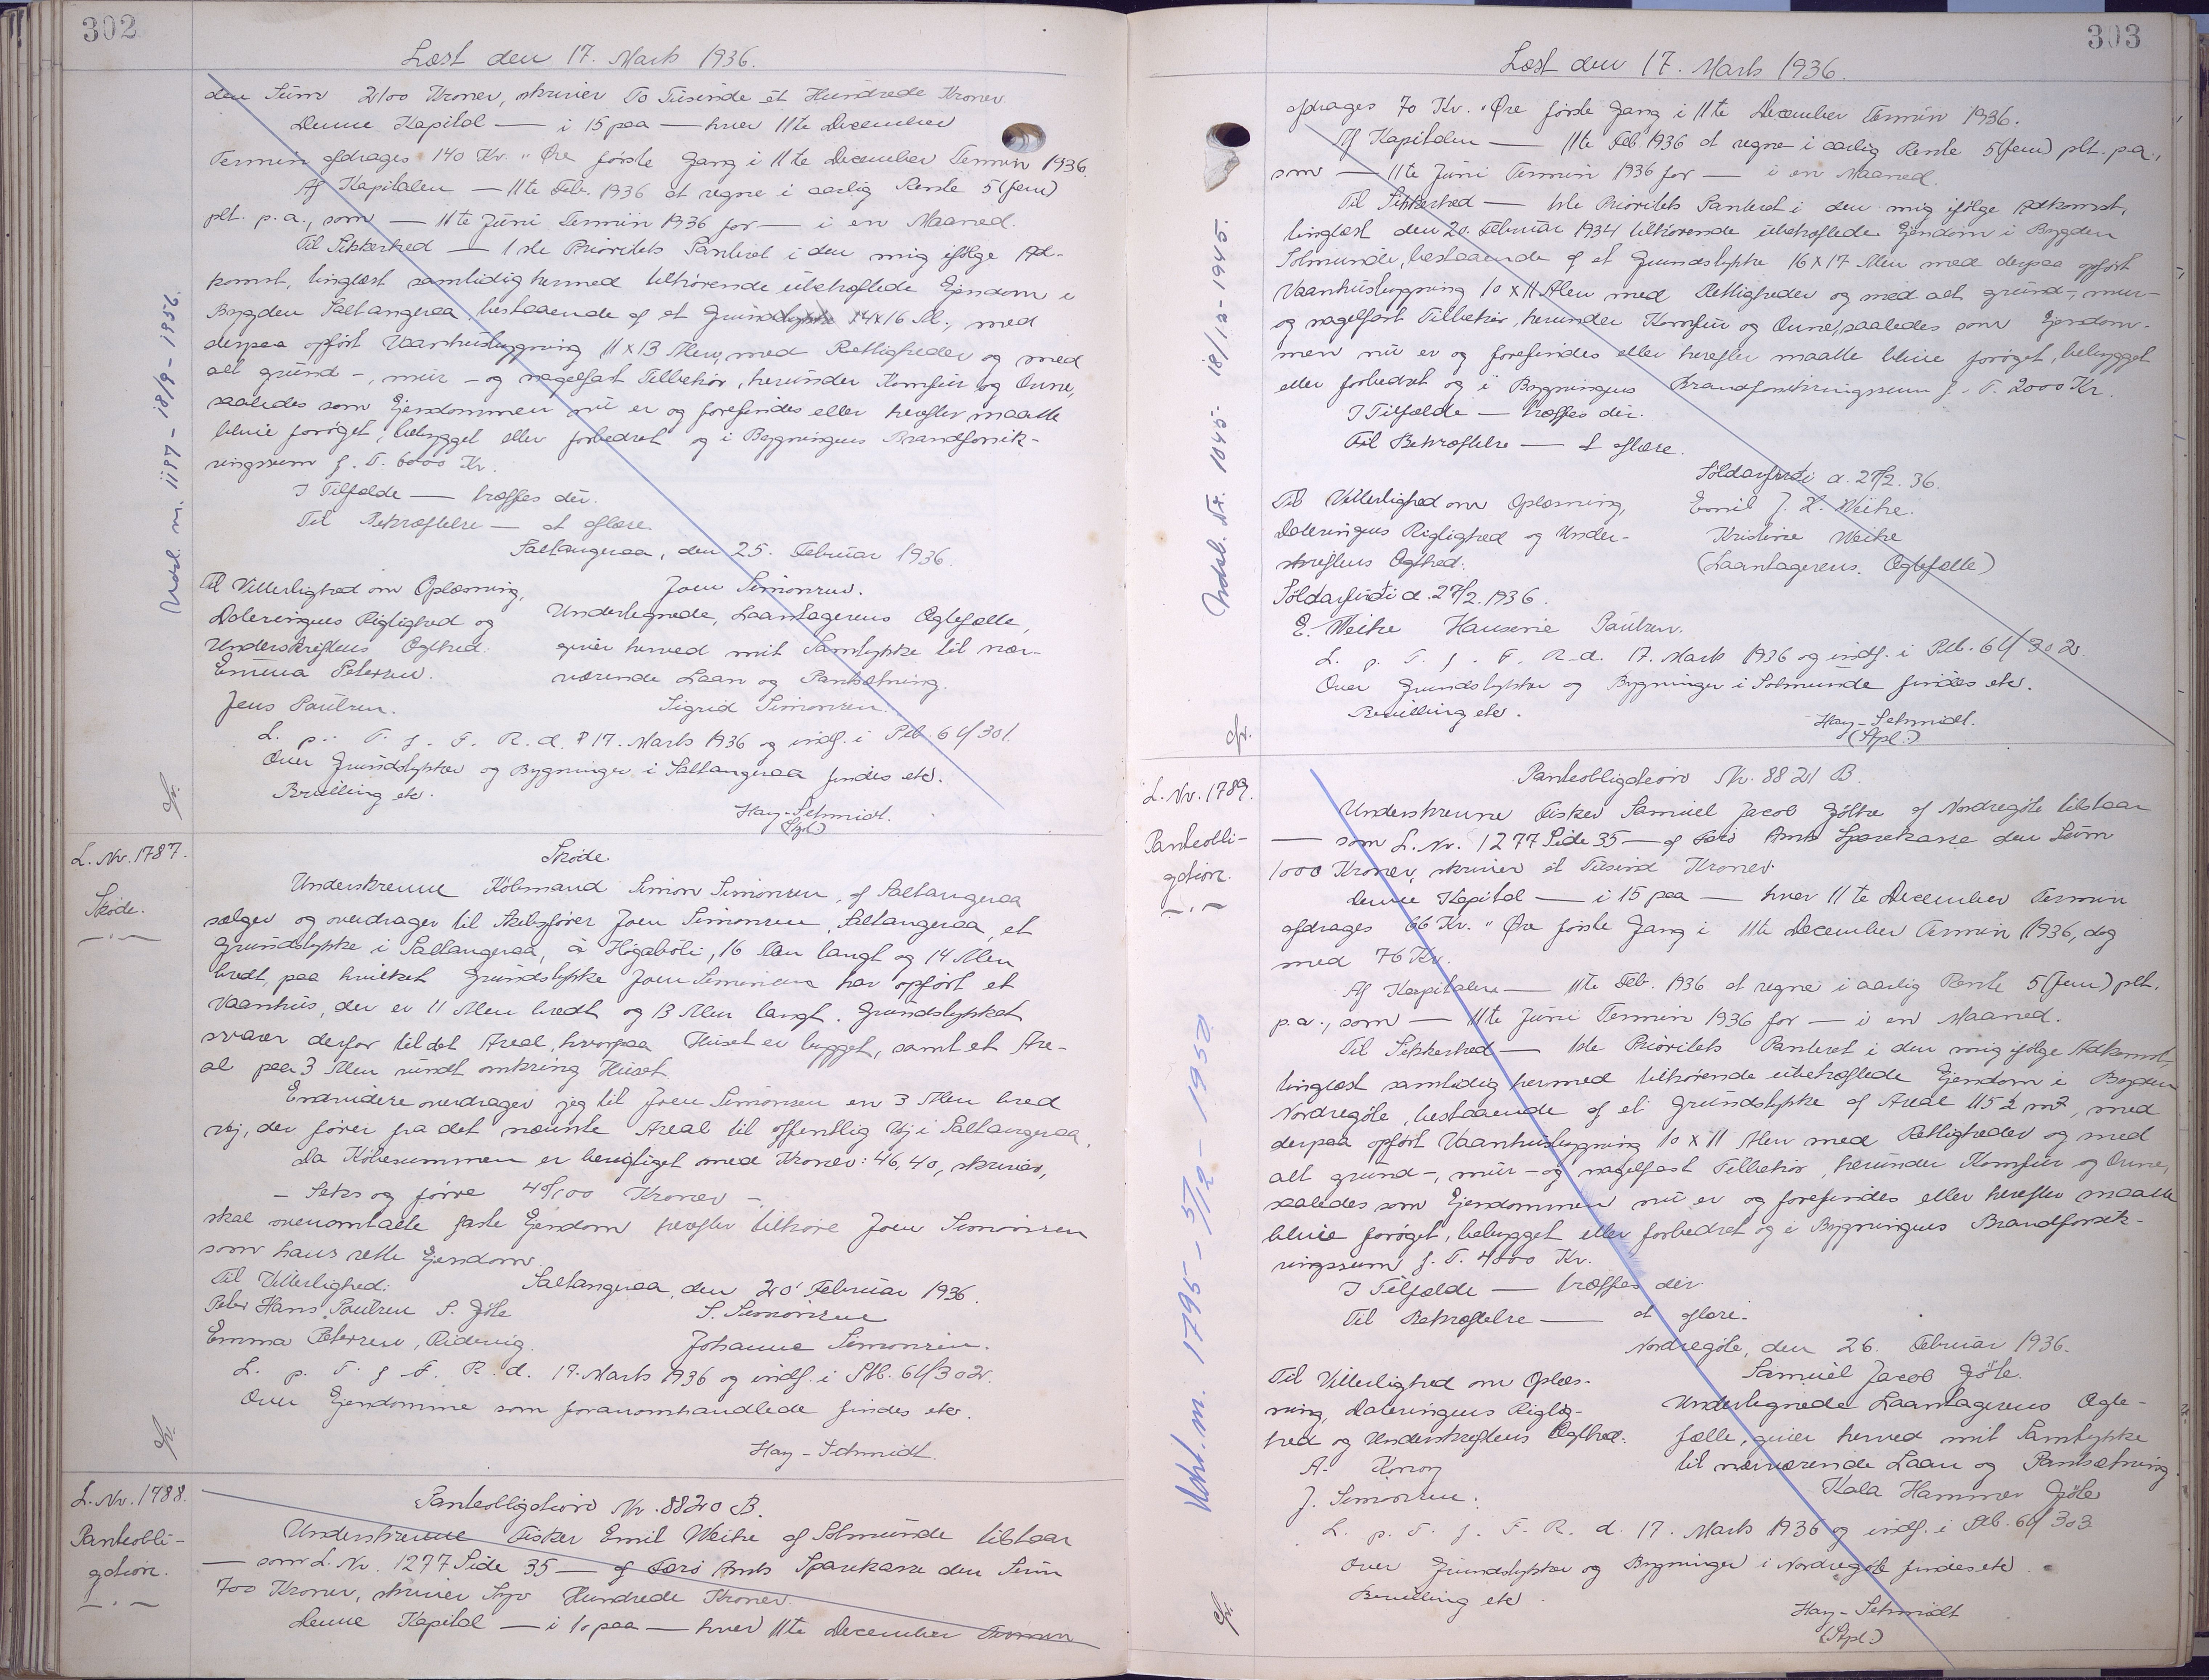 302
Læst den 17. Marts 1936.
den Sum 2100 Kroner, skriver To Tusinde ét Hundrede Kroner.
Denne Kapital — i 15 paa — hver 11te December
Termin afdrages 140 Kr. " Øre første Gang i 11te December Termin 1936.
Af Kapitalen — 11te Feb. 1936 at regne i aarlig Rente 5 (fem)
pCt. p.a., som — 11te Juni Termin 1936 for — i en Maaned.
Til Sikkerhed — 1ste Prioritets Panteret i den mig ifølge Ad-
komst, tinglæst samtidig hermed tilhørende ubehæftede Ejendom i
Bygden Saltangeraa, bestaaende af et Grundstykke 14x16 Al., med
derpaa opført Vaanhusbygning 11x13 Alen, med Rettigheder og med
alt grund-, mur- og nagelfast Tilbehør, herunder Komfur og Ovne,
saaledes som Ejendommen nu er og forefindes eller herefter maatte
blive forøget, bebygget eller forbedret og i Bygningens Brandforsik-
ringssum f. T. 6000 Kr.
I Tilfælde — træffes der.
Til Bekræftelse — at aflære.
Saltangeraa, den 25. Februar 1936.
Til Vitterlighed om Oplæsning,
Dateringens Rigtighed og
Underskriftens Ægthed:
Emma Petersen.
Jens Paulsen.
Joen Simonsen.
Undertegnede, Laantagerens Ægtefælle,
giver herved mit Samtykke til nær-
værende Laan og Pantsætning.
Sigrid Simonsen.
L. p. T. f. F. R. d. 17. Marts 1936 og indf. i Ptb. 64/301.
Over Grundstykker og Bygninger i Saltangeraa findes etc.
Bevilling etc.
Hay-Schmidt.
(Stpl.)
Udsl. m. 1197 - 18/9 - 1956.
L. Nr. 1787.
Skøde.
Skøde.
Underskrevne Købmand Simon Simonsen, af Saltangeraa
sælger og overdrager til Skibsfører Joen Simonsen, Saltangeraa, et
Grundstykke i Saltangeraa, á Høgabóli, 16 Alen langt og 14 Alen
bredt, paa hvilket Grundstykke Joen Simonsen har opført et
Vaanhus, der er 11 Alen bredt og 13 Alen langt. Grundstykket
svarer derfor til det Areal, hvorpaa Huset er bygget, samt et Are-
al paa 3 Alen rundt omkring Huset.
Endvidere overdrager jeg til Joen Simonsen en 3 Alen bred
Vej, der fører fra det nævnte Areal til offentlig Vej i Saltangeraa.
Da Købesummen er berigtiget med Kroner: 46,40, skriver,
- Seks og førre 40/100 Kroner -
skal ovenomtalte faste Ejendom herefter tilhøre Joen Simonsen
som hans rette Ejendom.
Til Vitterlighed:
Saltangeraa, den 20' Februar 1936.
Peter Hans Poulsen S. Gøte
S. Simonsen
Emma Petersen, Ridevig.
Johanne Simonsen.
L. p. T. f. F. R. d. 17. Marts 1936 og indf. i Sktb. 64/302.
Over Ejendomme som foranomhandlede findes etc.
Hay-Schmidt.
L. Nr. 1788.
Panteobli-
gation.
Panteobligation Nr. 8820 B.
Underskrevne Fisker Emil Weihe af Solmunde tilstaar
— som L. Nr. 1277 Side 35 — af Færø Amts Sparekasse den Sum
700 Kroner, skriver Syv Hundrede Kroner.
Denne Kapital — i 10 paa — hver 11te December Termin
303
Læst den 17. Marts 1936.
afdrages 70 Kr. " Øre første Gang i 11te December Termin 1936.
Af Kapitalen — 11te Feb. 1936 at regne i aarlig Rente 5 (fem) pCt. p.a.,
som — 11te Juni Termin 1936 for — i en Maaned.
Til Sikkerhed — 1ste Prioritets Panteret i den mig ifølge Adkomst,
tinglæst den 20. Februar 1934 tilhørende ubehæftede Ejendom i Bygden
Solmunde, bestaaende af et Grundstykke 16x17 Alen med derpaa opført
Vaanhusbygning 10x11 Alen med Rettigheder og med alt grund-, mur-
og nagelfast Tilbehør, herunder Komfur og Ovne, saaledes som Ejendom-
men nu er og forefindes eller herefter maatte blive forøget, bebygget
eller forbedret og i Bygningens Brandforsikringssum f. T. 2000 Kr.
I Tilfælde — træffes der.
Til Bekræftelse — at aflære.
Søldarfirdi d. 27/2. 36.
Til Vitterlighed om Oplæsning,
Dateringens Rigtighed og Under-
skriftens Ægthed:
Søldarfirdi d. 27/2. 1936.
E. Weihe Hansine Poulsen.
Emil J. H. Weihe.
Kristine Weihe
(Laantagerens Ægtefælle)
L. p. T. f. F. R. d. 17. Marts 1936 og indf. i Ptb. 64/302.
Over Grundstykker og Bygninger i Solmunde findes etc.
Bevilling etc.
Hay-Schmidt.
(Stpl.)
Udsl. Nr. 1045- 18/12-1945.
L. Nr. 1789.
Panteobli-
gation.
Panteobligation Nr. 8821 B.
Underskrevne Fisker Samuel Jacob Gøtke af Nordregøte tilstaar
— som L. Nr. 1277 Side 35 — af Færø Amts Sparekasse den Sum
1000 Kroner, skriver et Tusind Kroner.
Denne Kapital — i 15 paa — hver 11te December Termin
afdrages 66 Kr. " Øre første Gang i 11te December Termin 1936, dog
med 76 Kr.
Af Kapitalen — 11te Feb. 1936 at regne i aarlig Rente 5 (fem) pCt.
p.a., som — 11te Juni Termin 1936 for — i en Maaned.
Til Sikkerhed — 1ste Prioritets Panteret i den mig ifølge Adkomst,
tinglæst samtidig hermed tilhørende ubehæftede Ejendom i Bygden
Nordregøte, bestaaende af et Grundstykke af Areal 1152 m², med
derpaa opført Vaanhusbygning 10 x 11 Alen med Rettigheder og med
alt grund-, mur- og nagelfast Tilbehør, herunder Komfur og Ovne,
saaledes som Ejendommen nu er og forefindes eller herefter maatte
blive forøget, bebygget eller forbedret og i Bygningens Brandforsik-
ringssum f. T. 4000 Kr.
I Tilfælde — træffes der.
Til Bekræftelse — at aflære.
Nordregøte, den 26. Februar 1936.
Til Vitterlighed om Oplæs-
ning, Dateringens Rigtig-
hed og Underskriftens Ægthed:
J. Simonsen.
Samuel Jacob Gøte.
Undertegnede Laantagerens Ægte-
fælle, giver herved mit Samtykke
til nærværende Laan og Pantsætning.
Kala Hammer Gøte
L. p. T. f. F. R. d. 17. Marts 1936 og indf. i Ptb. 64/303
Over Grundstykker og Bygninger i Nordregøte findes etc.
Bevilling etc.
Hay-Schmidt
(Stpl.)
Udsl. m. 1795 - 5/12 - 1952